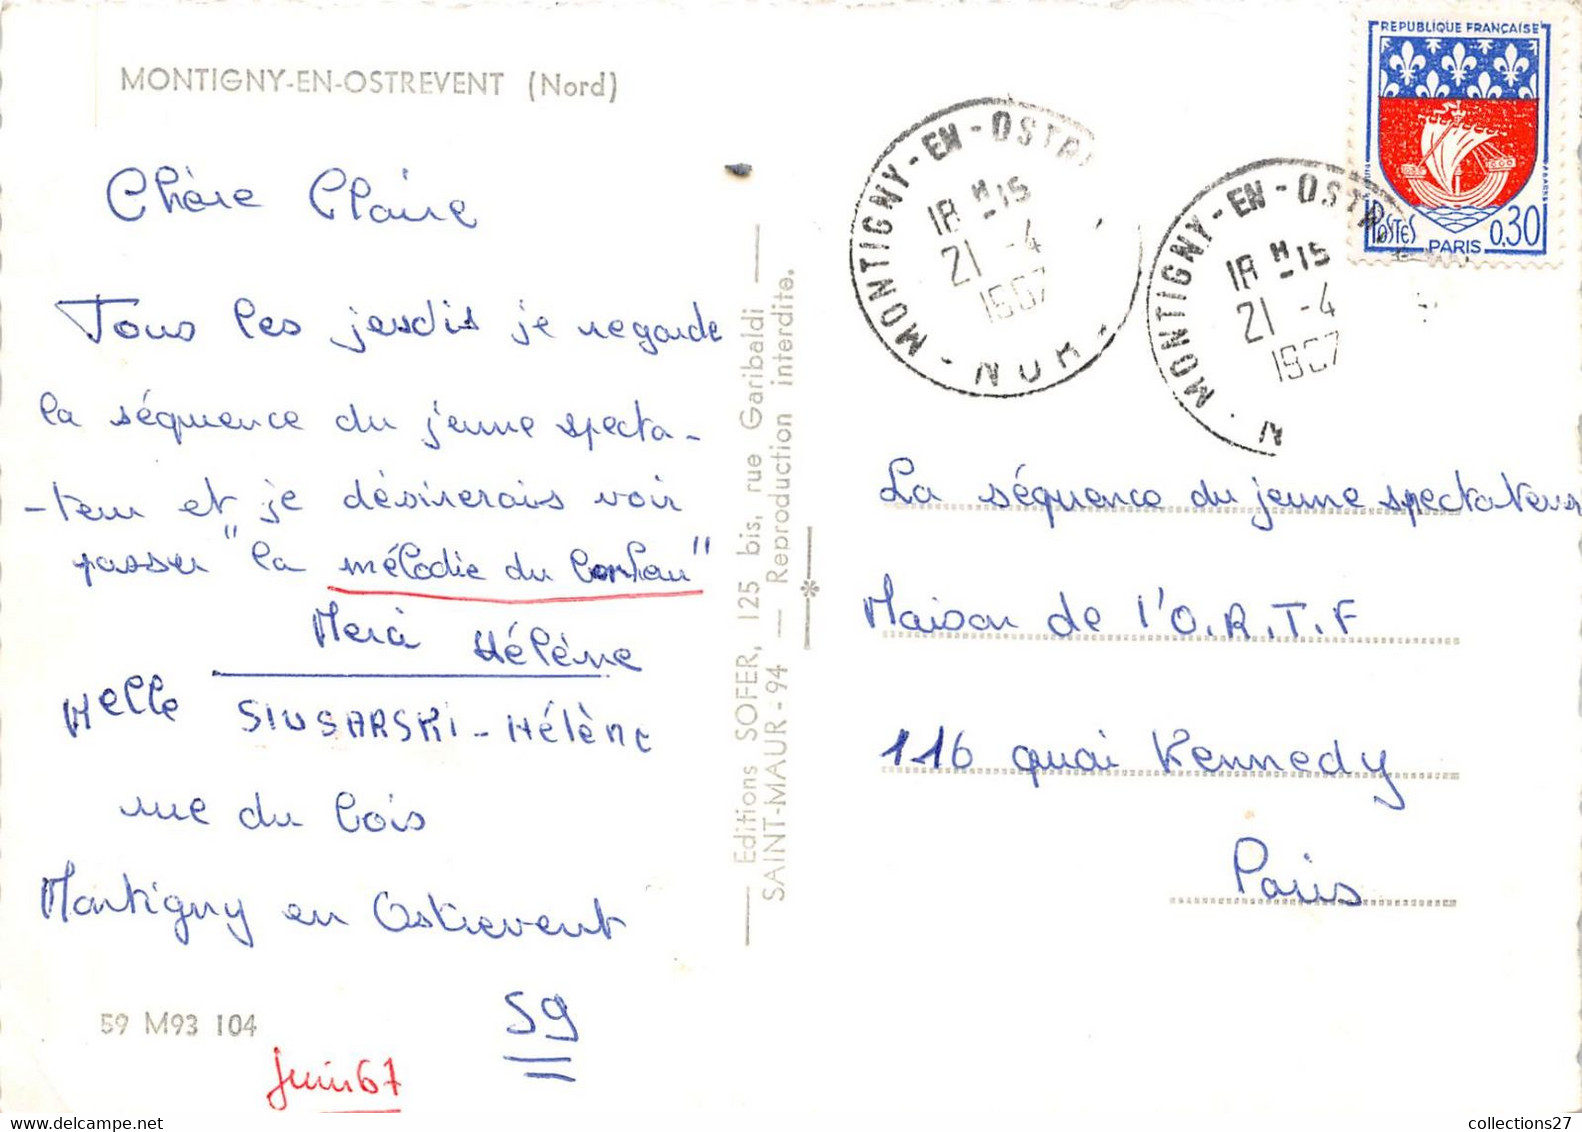 MONTIGNY-EN-OSTREVENT (Nord)
Chère Claire
Tous les jeudis je regarde
la séquence du jeune specta-
-teur et je désirerais voir
passer "la mélodie du bonheur"
Merci Hélène
Melle SLUSARSKI-Hélène
rue du bois
Montigny en Ostrevent
59
59 M93 104
juin 67
Editions SOFER, 125 bis, rue Garibaldi
SAINT-MAUR - 94 — Reproduction interdite.
MONTIGNY-EN-OSTR
18 H 15
21 -4
1967
NOR
MONTIGNY-EN-OSTR
18 H 15
21 -4
1967
N
REPUBLIQUE FRANÇAISE
POSTES PARIS 0,30
La séquence du jeune spectateur
Maison de l'O.R.T.F
116 quai Kennedy
Paris
collections27